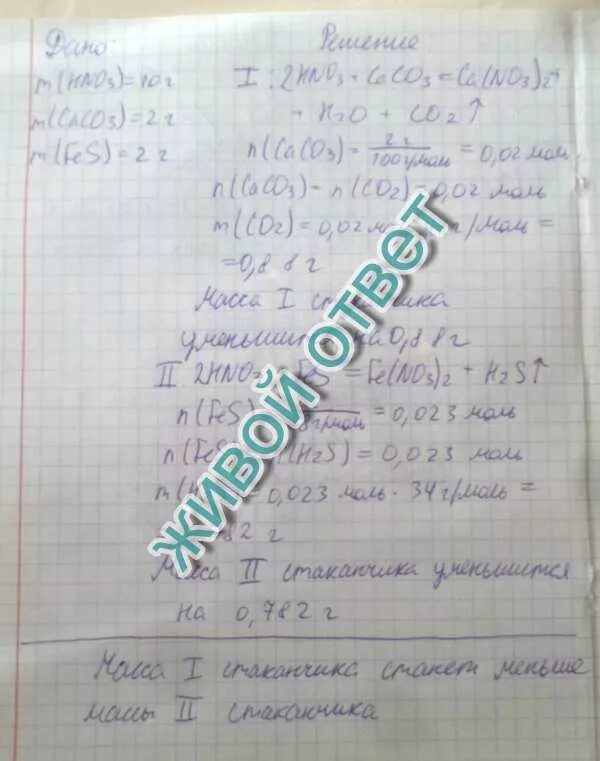 Дано: Решение
m(HNO3)=10 г I: 2HNO3 + CaCO3 = Ca(NO3)2+
m(CaCO3)=2 г + H2O + CO2↑
m(FeS)=2 г n(CaCO3)= 2 г / 100 г/моль = 0,02 моль
n(CaCO3)= n(CO2)=0,02 моль
m(CO2)=0,02 /моль =
=0,88 г
Масса I стаканчика
уменьшится на 0,88 г
II. 2HNO3 + FeS = Fe(NO3)2 + H2S↑
n(FeS) г/моль = 0,023 моль
n(FeS) (H2S) = 0,023 моль
m( = 0,023 моль · 34 г/моль =
82 г
Масса II стаканчика уменьшится
на 0,782 г
Масса I стаканчика станет меньше
массы II стаканчика
ЖИВОЙ ОТВЕТ